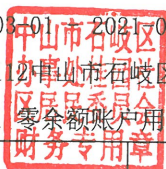 03-01 - 2021-0
中山市石岐区
办事处
112中山市石岐区
居民委员会
零余额账户用
财务专用章